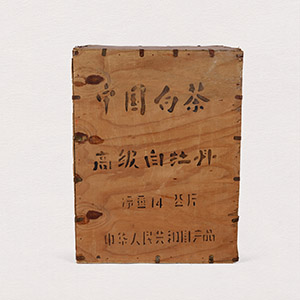 中国白茶
高级白牡丹
净重14公斤
中华人民共和国产品